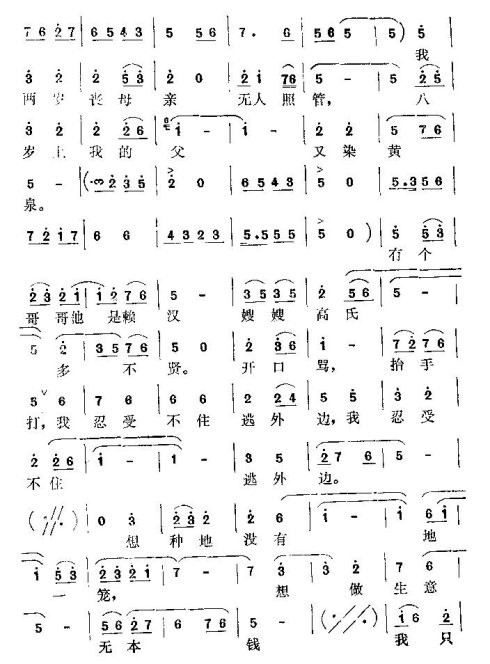 7 6 2 7 | 6 5 4 3 | 5 5 6 | 7. 6 | 5 6 5 | 5 5) 5
我
3 2 | 2 5 3 | 2 0 | 2 1 7 6 | 5 - | 5 2 5
两岁 丧母 亲 无人照 管, 八
3 2 | 2 2 6 | 1 - | 1 - | 2 2 | 5 7 6
岁上 我的 父 又染 黄
5 - | (3 2 3 5 | 2 0 | 6 5 4 3 | 5 0 | 5.3 5 6
泉。
7 2 1 7 | 6 6 | 4 3 2 3 | 5.5 5 5 | 5 0 ) | 5 5 3
有个
2 3 2 1 | 1 2 7 6 | 5 - | 3 5 3 5 | 2 5 6 | 5 -
哥哥他 是赖 汉 嫂嫂 高氏
5 2 | 3 5 7 6 | 5 0 | 2 3 6 | 1 - | 7 2 7 6
多 不 贤。 开口 骂, 抬手
5 6 | 7 6 | 5 6 | 2 2 4 | 5 5 | 3 2
打,我 忍受 不住 逃外 边,我 忍受
2 2 6 | 1 - | 1 - | 3 5 | 2 7 6 | 5 -
不住 逃外 边。
(//.) | 0 3 | 2 3 2 | 2 6 | 1 - | 1 6 1
想 种地 没有 地
1 5 3 | 2 3 2 1 | 7 - | 7 3 | 3 2 | 7 6
一 笼, 想 做 生意
5 - | 5 6 2 7 | 6 7 6 | 5 - | (//.) | 1 6 2
无本 钱 我只